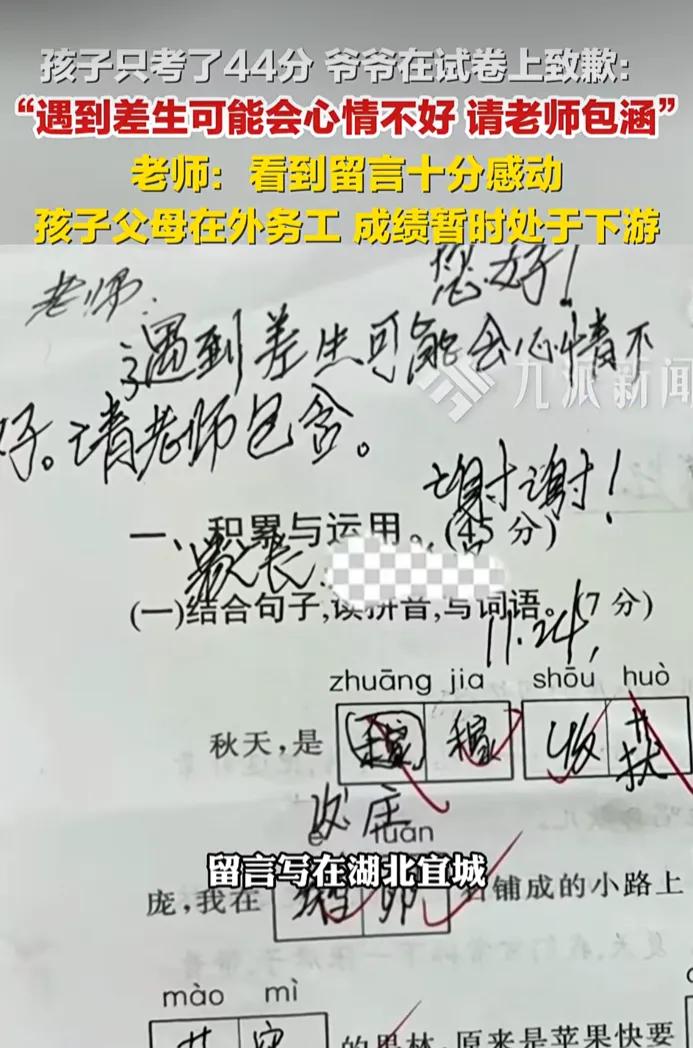 孩子只考了44分 爷爷在试卷上致歉:
“遇到差生可能会心情不好 请老师包涵”
老师：看到留言十分感动
孩子父母在外务工 成绩暂时处于下游
老师: 您好!
遇到差生可能会心情不
好。请老师包含。
九派新闻
谢谢!
一、积累与运用。(45 分)
家长
(一)结合句子,读拼音,写词语。(7 分)
11.24,
zhuāng jia shōu huò
秋天,是 稼 收
庄
é luǎn
留言写在湖北宜城
庞,我在 卵 石铺成的小路上
mào mì
的果林,原来是苹果快要